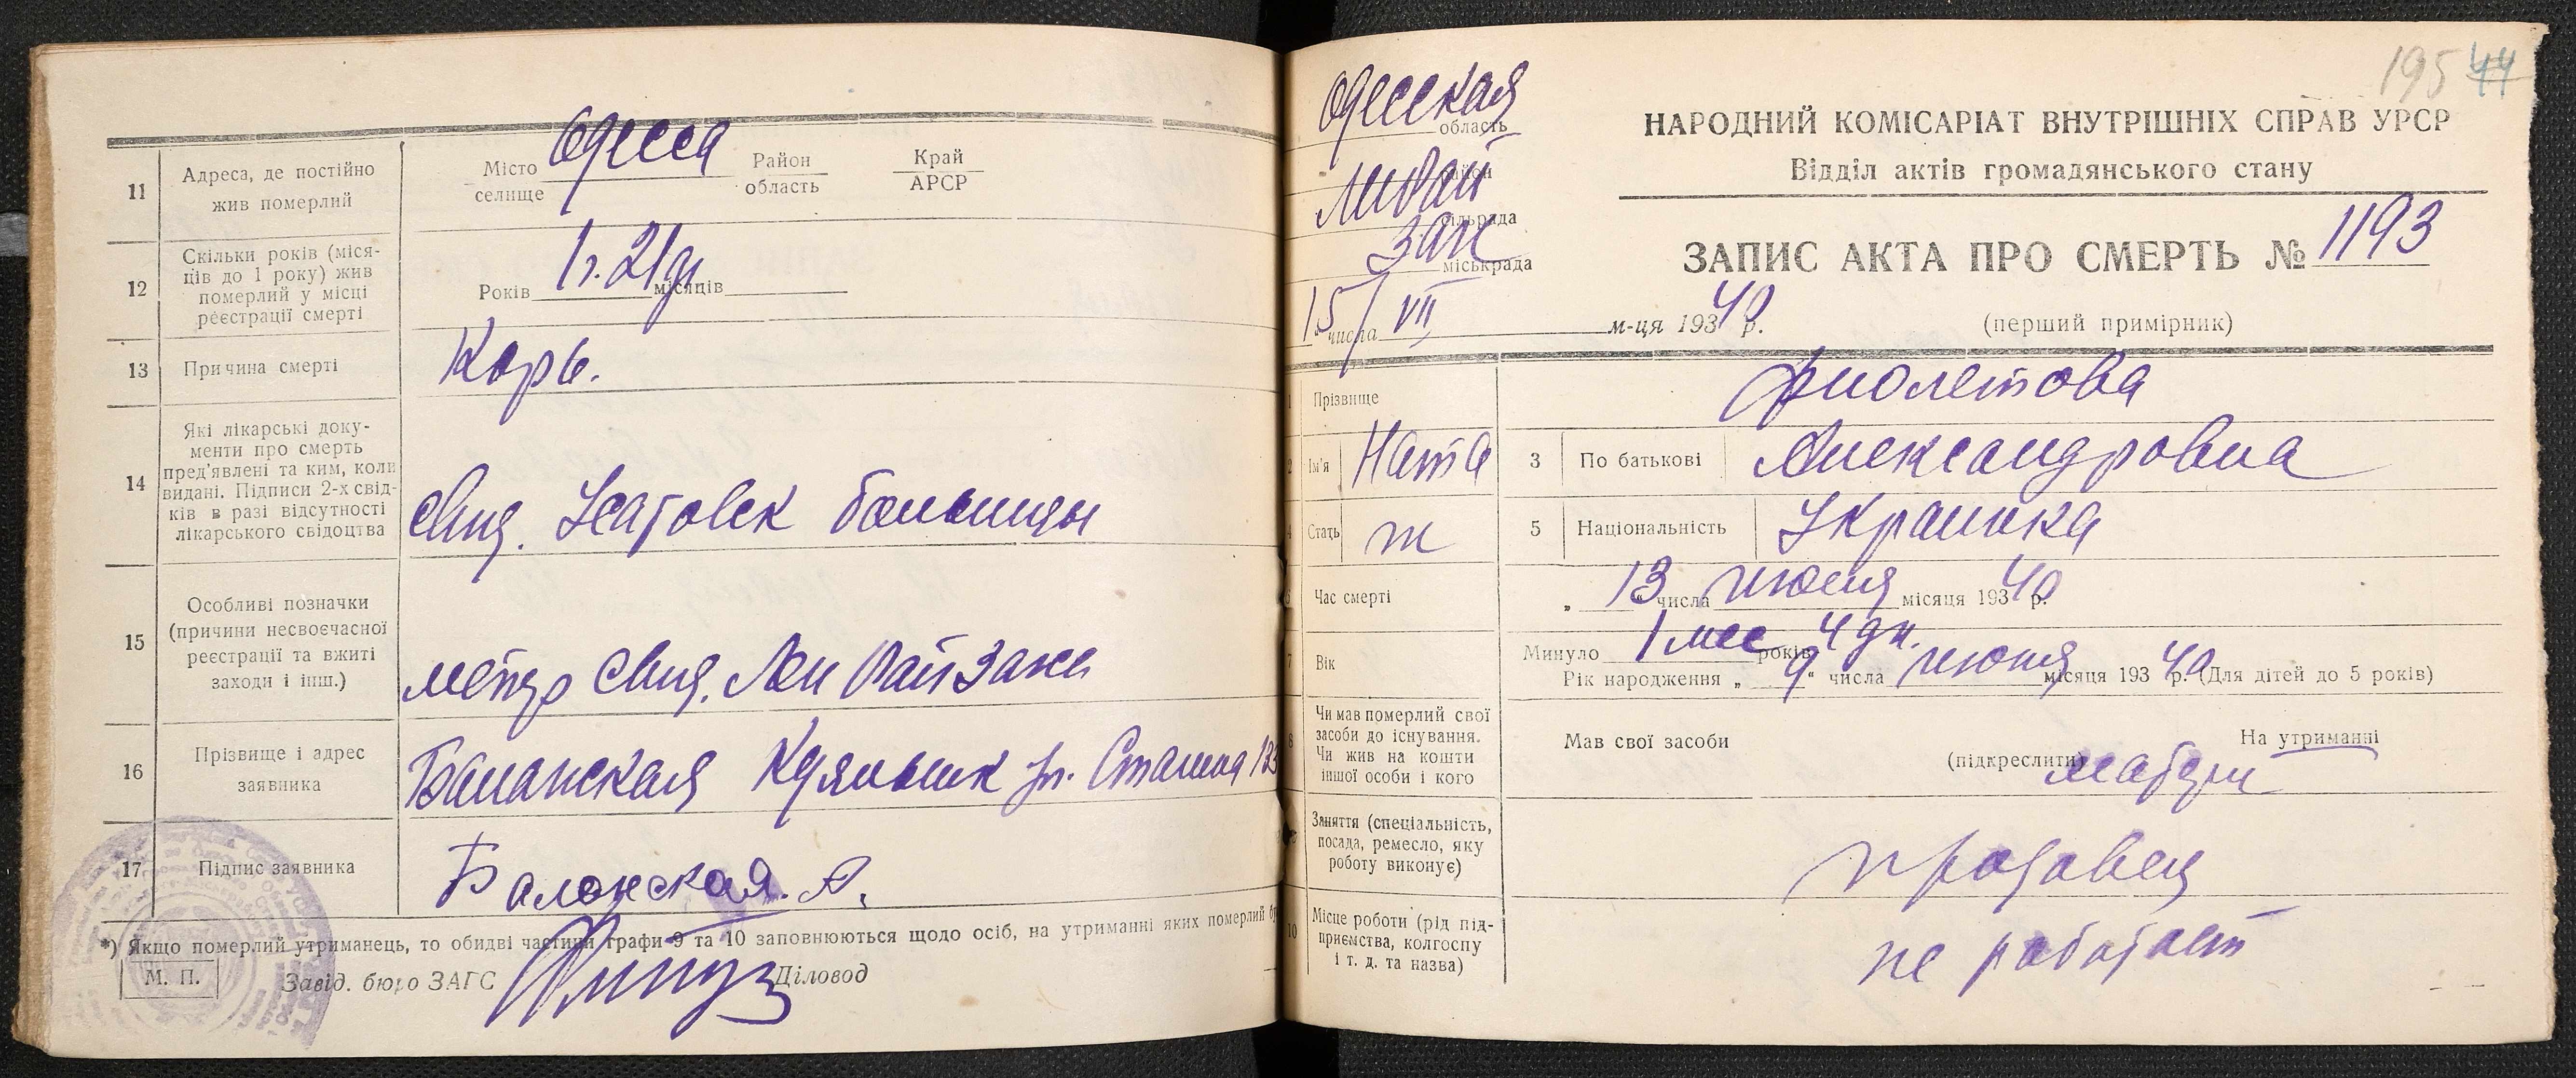 11
Адреса, де постійно
жив померлий
Місто
селище
Одесса
Район
область
Край
АРСР
12
Скільки років (міся-
ців до 1 року) жив
померлий у місці
реєстрації смерті
Років 1 г. 21 д. місяців
13
Причина смерті
Корь.
14
Які лікарські доку-
менти про смерть
пред'явлені та ким, коли
видані. Підписи 2-х свід-
ків в разі відсутності
лікарського свідоцтва
свид. Усатовск больницы
15
Особливі позначки
(причини несвоєчасної
реєстрації та вжиті
заходи і інш.)
метр свид. Лен Райзагс
16
Прізвище і адрес
заявника
Куяльник ул. Сталина 133
17
Підпис заявника
Балонская. А.
*) Якщо померлий утриманець, то обидві частини графи 9 та 10 заповнюються щодо осіб, на утриманні яких померлий
М. П.
Завід. бюро ЗАГС
Діловод
195 44
Одесская
область
район
сільрада
міськрада
15 числа VII м-ця 1940 р.
НАРОДНИЙ КОМІСАРІАТ ВНУТРІШНІХ СПРАВ УРСР
Відділ актів громадянського стану
ЗАПИС АКТА ПРО СМЕРТЬ № 1193
(перший примірник)
1
Прізвище
Фиолетова
2
Ім'я
Ната
3
По батькові
Александровна
4
Стать
ж
5
Національність
Украинка
6
Час смерті
„ 13 “ числа июля місяця 19340 р.
7
Вік
Минуло 1 мес 4 дн. років
Рік народження „ 9 “ числа июня місяця 19340 р. (Для дітей до 5 років)
8
Чи мав померлий свої
засоби до існування.
Чи жив на кошти
іншої особи і кого
Мав свої засоби
(підкреслити)
На утриманні
матери
Заняття (спеціальність,
посада, ремесло, яку
роботу виконує)
продавец
10
Місце роботи (рід під-
приємства, колгоспу
і т. д. та назва)
не работает